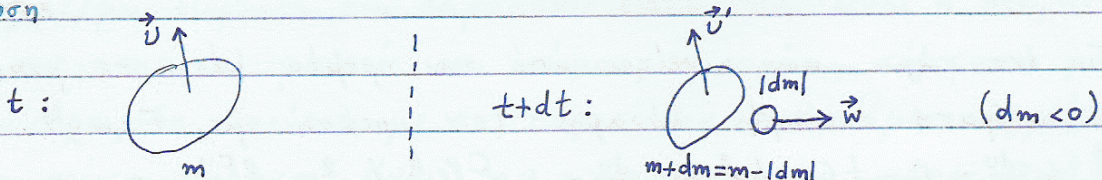 t : $\vec{υ}$ m t+dt : $\vec{υ}'$ |dm| $\vec{w}$ (dm<0)
m+dm=m-|dm|